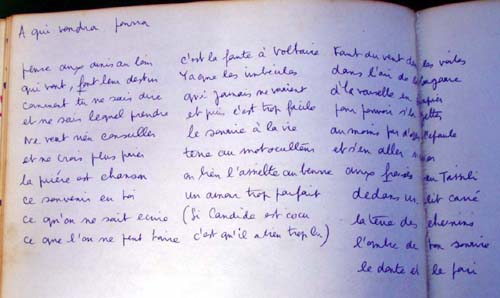 A qui vendra pourra
pense aux amis au loin
qui vont, font leur destin
comment tu ne sais dire
et ne sais lequel prendre
ne veut rien conseiller
et ne crois plus prier
la prière est chanson
ce souvenir en toi
ce qu'on ne sait écrire
ce que l'on ne peut taire
c'est la faute à Voltaire
Y a que les imbéciles
qui jamais ne varient
et puis c'est trop facile
le sourire à la vie
terre au motoculteur
ou bien l'assiette au beurre
un amour trop parfait
(Si Candide est cocu
c'est qu'il a bien trop lu)
Faut du vent dans les voiles
dans l'air de la
d' la vaisselle en papier
pour pouvoir s'les
au moins par d'ssus l'épaule
et s'en aller
aux du Tassili
dedans un lit carré
la terre des chemins
l'ombre de ton sourire
le doute et le pari